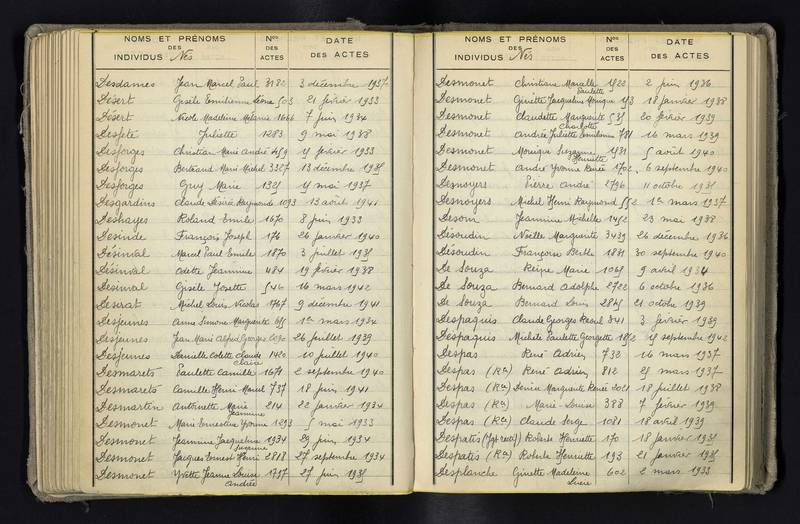 NOMS ET PRÉNOMS DES INDIVIDUS Nés
Nos DES ACTES
DATE DES ACTES
Desdames Jean Marcel Paul 3 décembre 1937
Désert Gisèle Emilienne 503 21 février 1933
Désert Nicole Madeleine Mélanie 7 juin 1934
Juliette 1283 9 mai 1938
Desforges Christian Marie André février 1933
Desforges Bertrand Marie Michel 3327 13 décembre
Desforges Guy Marie mai 1937
Desgardins Claude Désiré Raymonde 1093 13 août 1941
Deshayes Roland Emile 1670 8 juin 1933
Desinde François Joseph 176 26 janvier 1940
Désinval Marcel Paul Emile 1870 3 juillet
Désinval Odette Jeannine 484 19 février 1938
Desinval Gisèle Josette 546 16 mars 1942
Desirat Michel Louis Nicolas 1767 9 décembre 1941
Desjeunes Anne Simone Marguerite 1er mars 1934
Desjeunes Jean Marie Alfred Georges 26 juillet 1939
Desjeunes Colette Claude 1420 10 juillet 1940
Desmarets Paulette Camille 1671 2 septembre 1940
Desmarets Camille Henri Marcel 737 18 juin 1941
Desmartin Antoinette Marie Jeannine 214 22 janvier 1934
Desmonet Marie Ernestine Yvonne 1293 5 mai 1933
Desmonet Jeannine Jacqueline 1934 29 juin 1934
Desmonet Jacques Ernest Henri 2818 27 septembre 1934
Desmonet Yvette Jeanne Louise Andrée 1797 27 juin
NOMS ET PRÉNOMS DES INDIVIDUS Nés
Nos DES ACTES
DATE DES ACTES
Desmonet Christiane Marcelle Paulette 2 juin 1936
Desmonet Ginette Jacqueline Monique 18 janvier 1938
Desmonet Claudette Marguerite Charlotte 20 février 1939
Desmonet Andrée Juliette 781 16 mars 1939
Desmonet Monique Suzanne Henriette 5 août 1940
Desmonet André Yvonne Renée 1702 6 septembre 1940
Desnoyers Pierre André 2796 11 octobre
Desnoyers Michel Henri Raymond 552 1er mars 1937
Desoin Jeannine Michelle 1452 23 mai 1938
Désoudin Noëlle Marguerite 3439 26 décembre 1936
Désoudin Françoise Berthe 1881 30 septembre 1940
De Souza Reine Marie 9 avril 1934
De Souza Bernard Adolphe 2722 6 octobre 1936
De Souza Bernard Louis 21 octobre 1939
Despaquis Claude Georges Raoul 341 3 février 1939
Despaquis Michèle Paulette Georgette septembre 1942
Despas René Adrien 732 16 mars 1937
Despas (Ron) René Adrien 812 mars 1937
Despas (Ron) Denise Marguerite Renée 2021 18 juillet 1938
Despas (Ron) Marie-Louise 388 7 février 1939
Despas (Ron) Claude Serge 1081 18 avril 1939
Despatis Roberte Henriette 170 18 janvier
Despatis (Ron) Roberte Henriette 193 21 janvier
Desplanche Ginette Madeleine Lucie 602 2 mars 1933